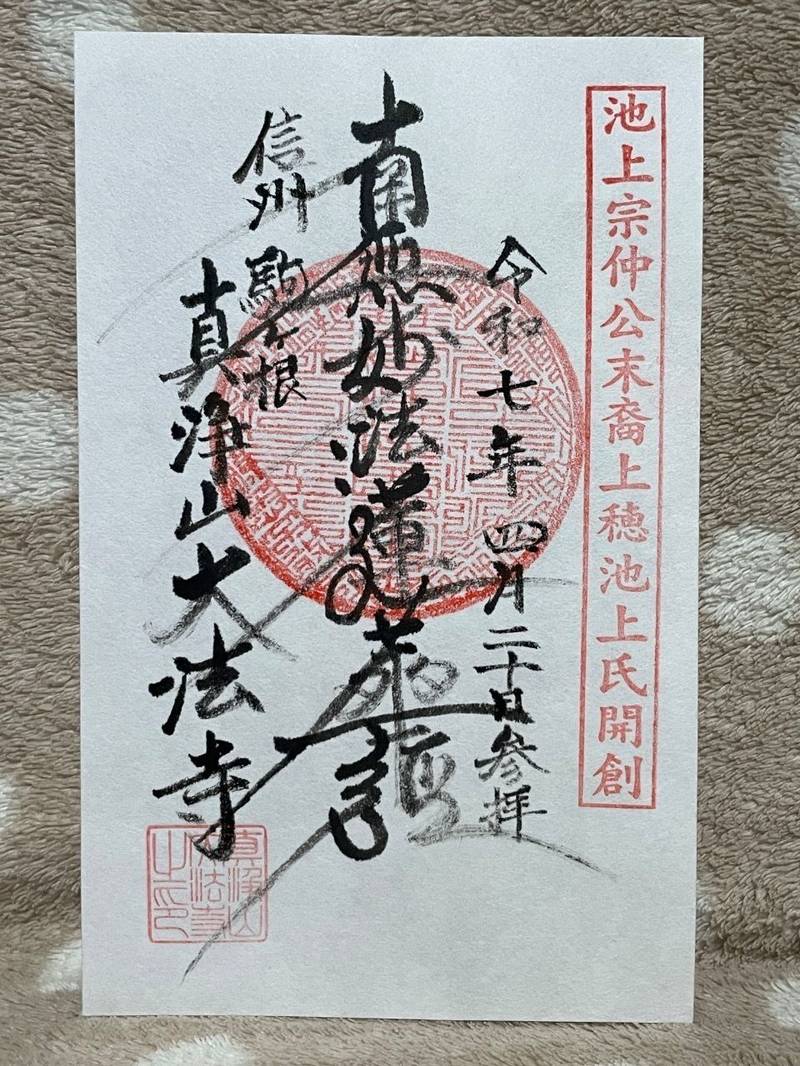 池上宗仲公末裔上穂池上氏開創
令和七年四月二十日参拝
南無妙法蓮華経
信州駒ヶ根
真浄山大法寺
真浄山
大法寺
之印